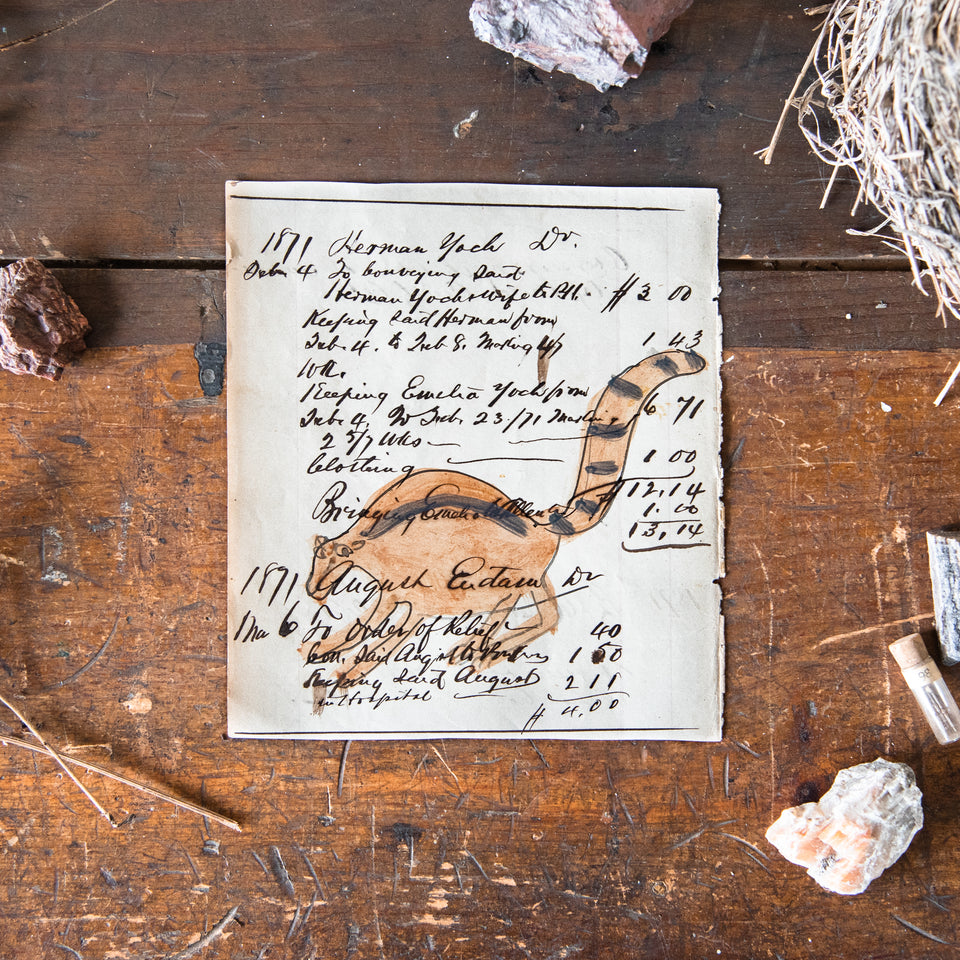 1871 Herman Yoch Dr.
Feb. 4 To Conveying said
Herman Yoch & wife to P.H. $ 3 00
Keeping said Herman from
Feb. 4. to Feb 8. Making 4/7 1 43
Wk.
Keeping Emelia Yoch from
Feb. 4. To Feb. 23/71 Making 6 71
2 5/7 Wks
Clothing 1 00
$ 12,14
Bringing Emelia 1.00
13,14
1871 August Dr
Mar 6 To Order of Relief 40
Con. said August to 1 50
Keeping said August 2 11
in Hospital
$ 4.00
98